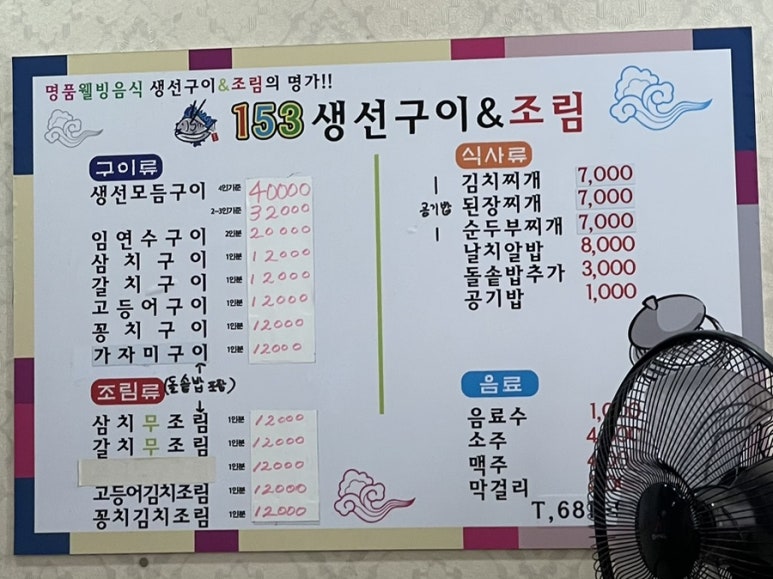 명품웰빙음식 생선구이&조림의 명가!!
153 생선구이&조림
구이류
생선모듬구이 4인기준 40000
2~3인기준 32000
임연수구이 2인분 20000
삼치구이 1인분 12000
갈치구이 1인분 12000
고등어구이 1인분 12000
꽁치구이 1인분 12000
가자미구이 1인분 12000
조림류 (돌솥밥 포함)
삼치무조림 1인분 12000
갈치무조림 1인분 12000
1인분 12000
고등어김치조림 1인분 12000
꽁치김치조림 1인분 12000
식사류
김치찌개 7,000
공기밥 된장찌개 7,000
순두부찌개 7,000
날치알밥 8,000
돌솥밥추가 3,000
공기밥 1,000
음료
음료수
소주
맥주
막걸리